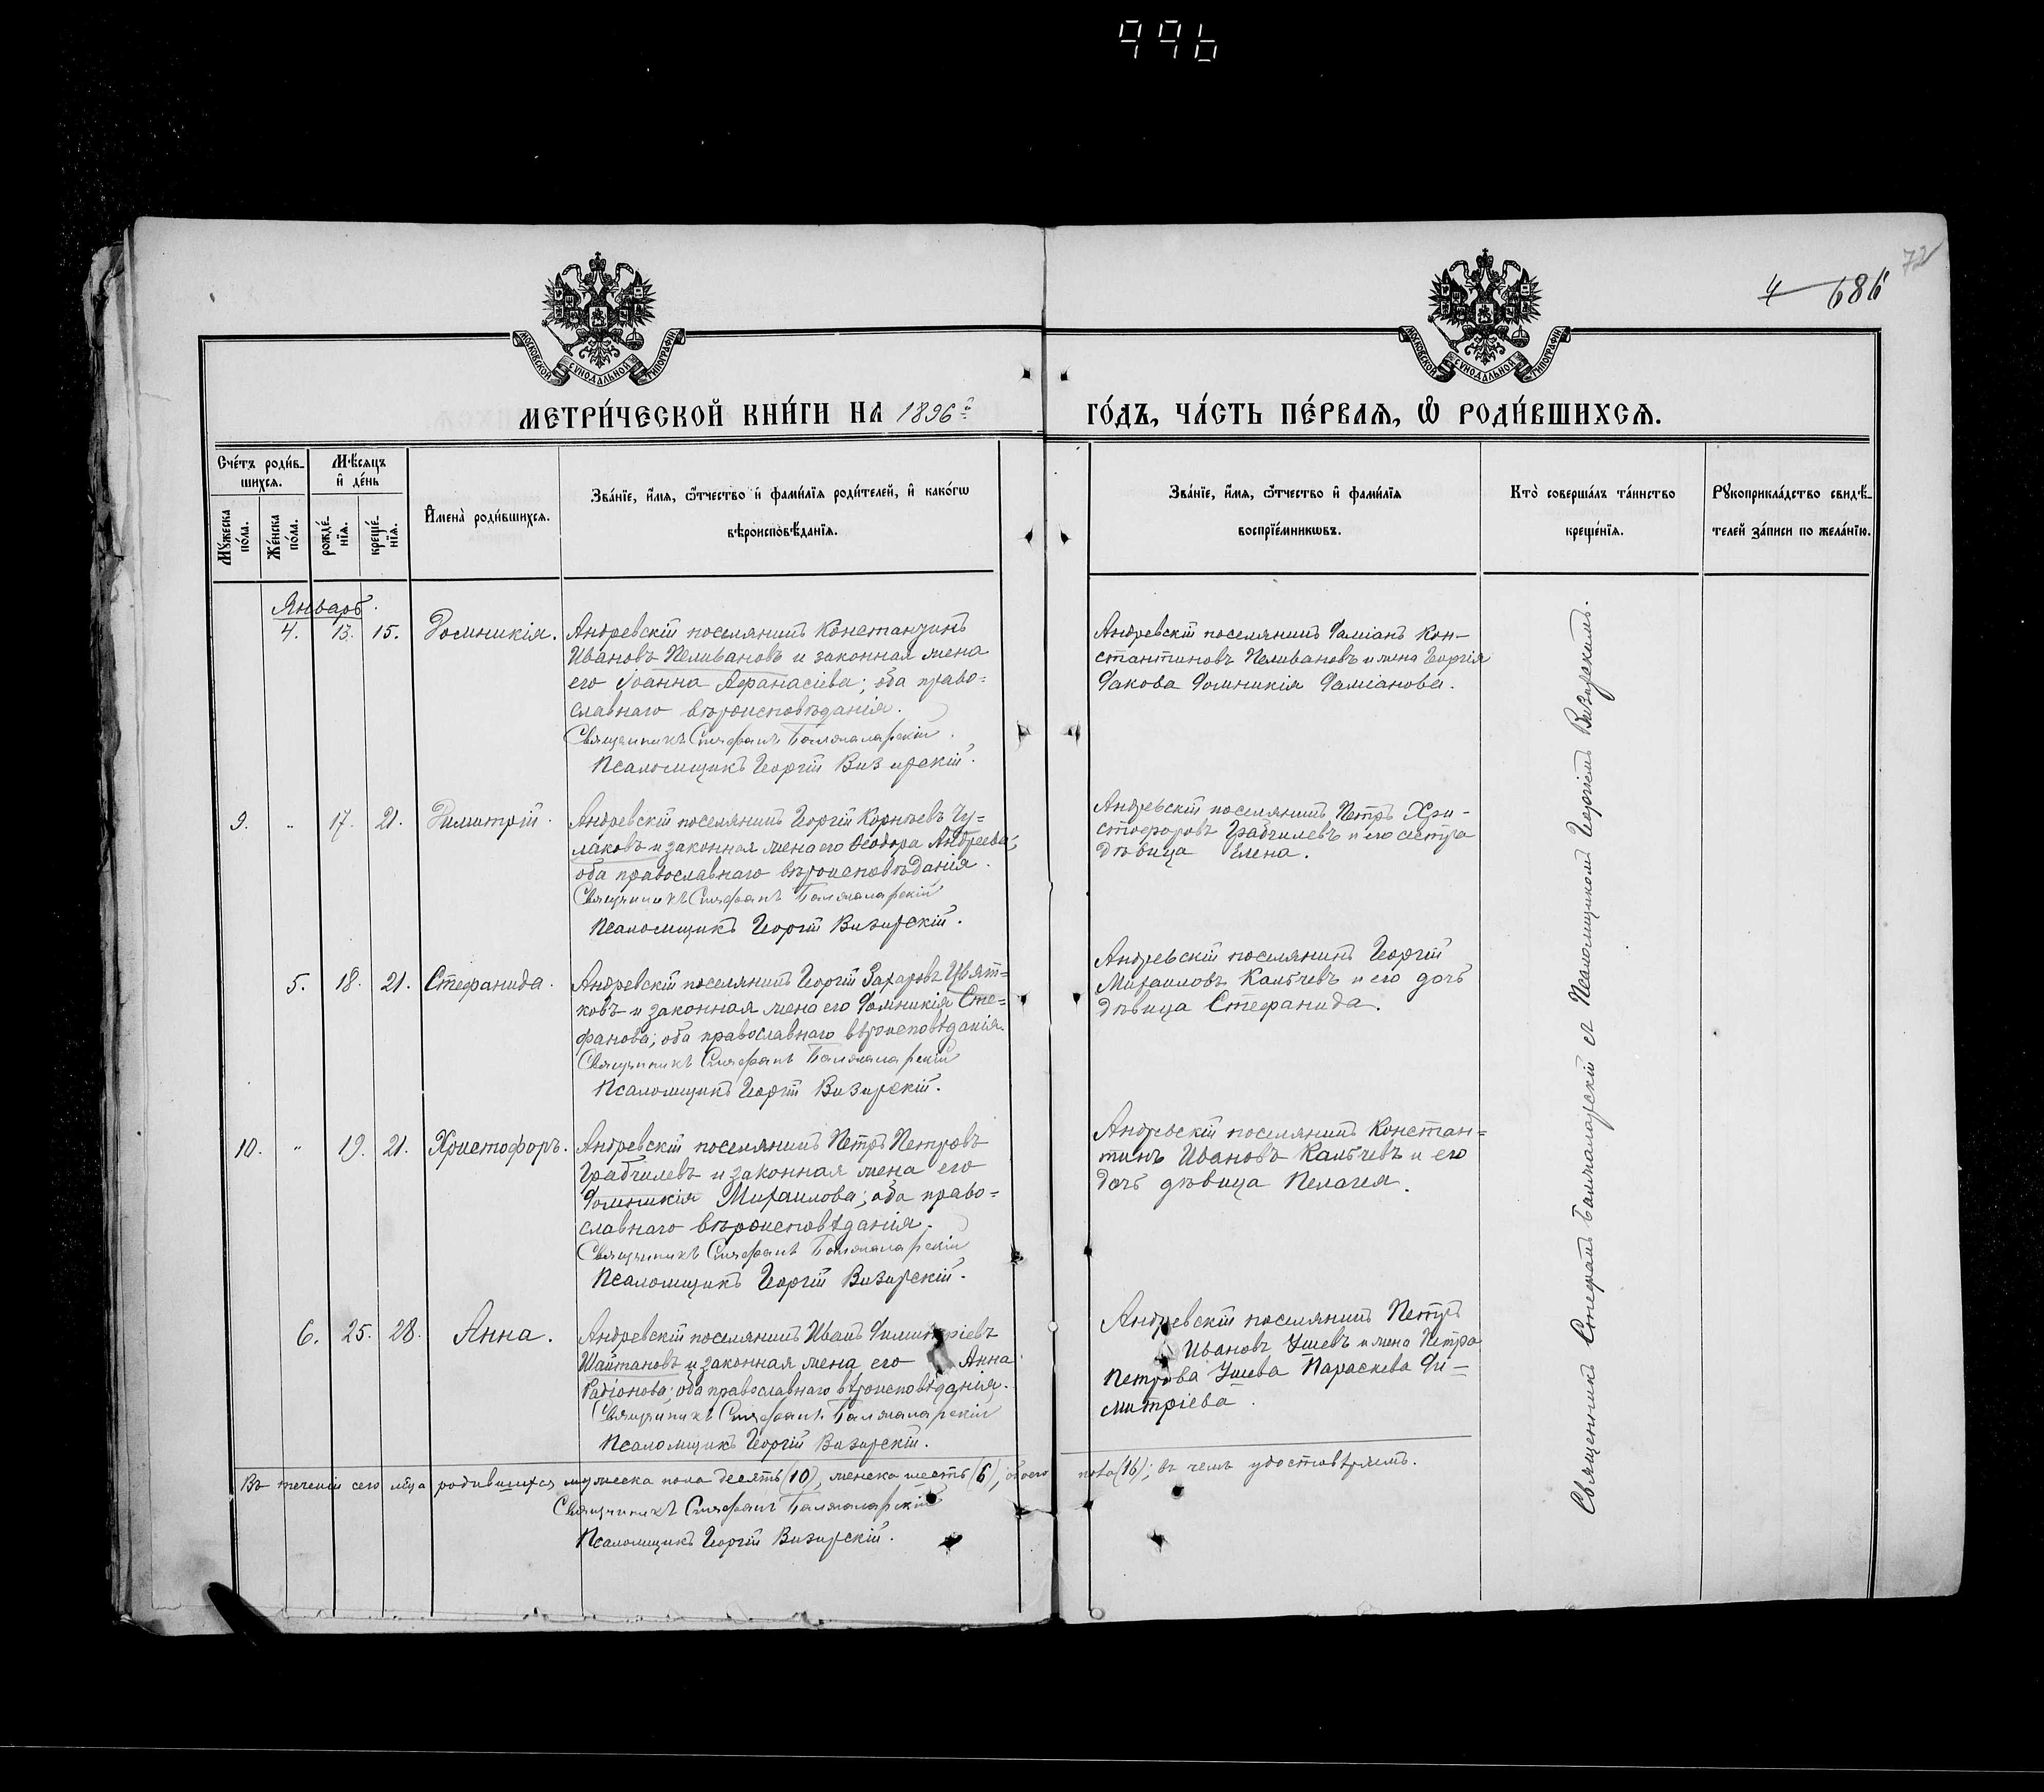 996
72
4 686
МОСКОВСКОЙ СѴНОДАЛЬНОЙ ТИПОГРАФІИ
МОСКОВСКОЙ СѴНОДАЛЬНОЙ ТИПОГРАФІИ
МЕТРИ́ЧЕСКОЙ КНИ́ГИ НА 1896й ГО́ДЪ, ЧА́СТЬ ПЕ́РВАѦ, Ѽ РОДИ́ВШИХСѦ.
Сче́тъ роди́в-
шихсѧ.
Мꙋ́жеска по́ла.
Же́нска по́ла.
Мѣ́сѧцъ
и҆ де́нь
рожде́-
нїѧ.
креще́-
нїѧ.
И҆мена̀ роди́вшихсѧ.
Зва́нїе, и҆́мѧ, ѻ҆́тчество и҆ фами́лїѧ роди́телей, и҆ како́гѡ
вѣроисповѣ́данїѧ.
Зва́нїе, и҆́мѧ, ѻ҆́тчество и҆ фами́лїѧ
воспрїе́мникѡвъ.
Кто̀ соверша́лъ та́инство
креще́нїѧ.
Рꙋкоприкла́дство свидѣ́-
телей за́писи по жела́нїю.
Январь.
4. 13. 15. Домникія.
Андревскій поселянинъ Константинъ
Ивановъ Пеливановъ и законная жена
его Іоанна Афанасіева; оба право=
славнаго вѣроисповѣданія.
Священникъ Стефанъ Балжаларскій.
Псаломщикъ Георгій Визирскій.
Андревскій поселянинъ Даміанъ Кон-
стантиновъ Пеливановъ и жена Георгія
Дакова Домникія Даміанова.
9. " 17. 21. Димитрій.
Андревскій поселянинъ Георгій Корнѣевъ Чу=
лаковъ и законная жена его Ѳеодора Андреева;
оба православнаго вѣроисповѣданія.
Священникъ Стефанъ Балжаларскій
Псаломщикъ Георгій Визирскій.
Андревскій поселянинъ Петръ Хри-
стофоровъ Грабчилевъ и его сестра
дѣвица Елена.
5. 18. 21. Стефанида.
Андревскій поселянинъ Георгій Захаровъ Цвят=
ковъ и законная жена его Домникія Сте=
фанова; оба православнаго вѣроисповѣданія.
Священникъ Стефанъ Балжаларскій
Псаломщикъ Георгій Визирскій.
Андревскій поселянинъ Георгій
Михаиловъ Калбчевъ и его дочь
дѣвица Стефанида.
10. " 19. 21. Христофоръ.
Андревскій поселянинъ Петръ Петровъ
Грабчилевъ и законная жена его
Домникія Михаилова; оба право=
славнаго вѣроисповѣданія.
Священникъ Стефанъ Балжаларскій
Псаломщикъ Георгій Визирскій.
Андревскій поселянинъ Констан=
тинъ Ивановъ Калбчевъ и его
дочь дѣвица Пелагия.
6. 25. 28. Анна.
Андревскій поселянинъ Иванъ Димитріевъ
Шайтановъ и законная жена его Анна
Радіонова; оба православнаго вѣроисповѣданія.
Священникъ Стефанъ Балжаларскій
Псаломщикъ Георгій Визирскій.
Андревскій поселянинъ Петръ
Ивановъ Ушевъ и жена Петра
Петрова Ушева Параскева Ди-
митріева.
Въ теченіи сего мѣсяца родившихся мужеска пола десять (10), женска шесть (6), обоего пола (16); въ чемъ удостовѣряемъ.
Священникъ Стефанъ Балжаларскій
Псаломщикъ Георгій Визирскій.
Священникъ Стефанъ Балжаларскій съ Псаломщикомъ Георгіемъ Визирскимъ.